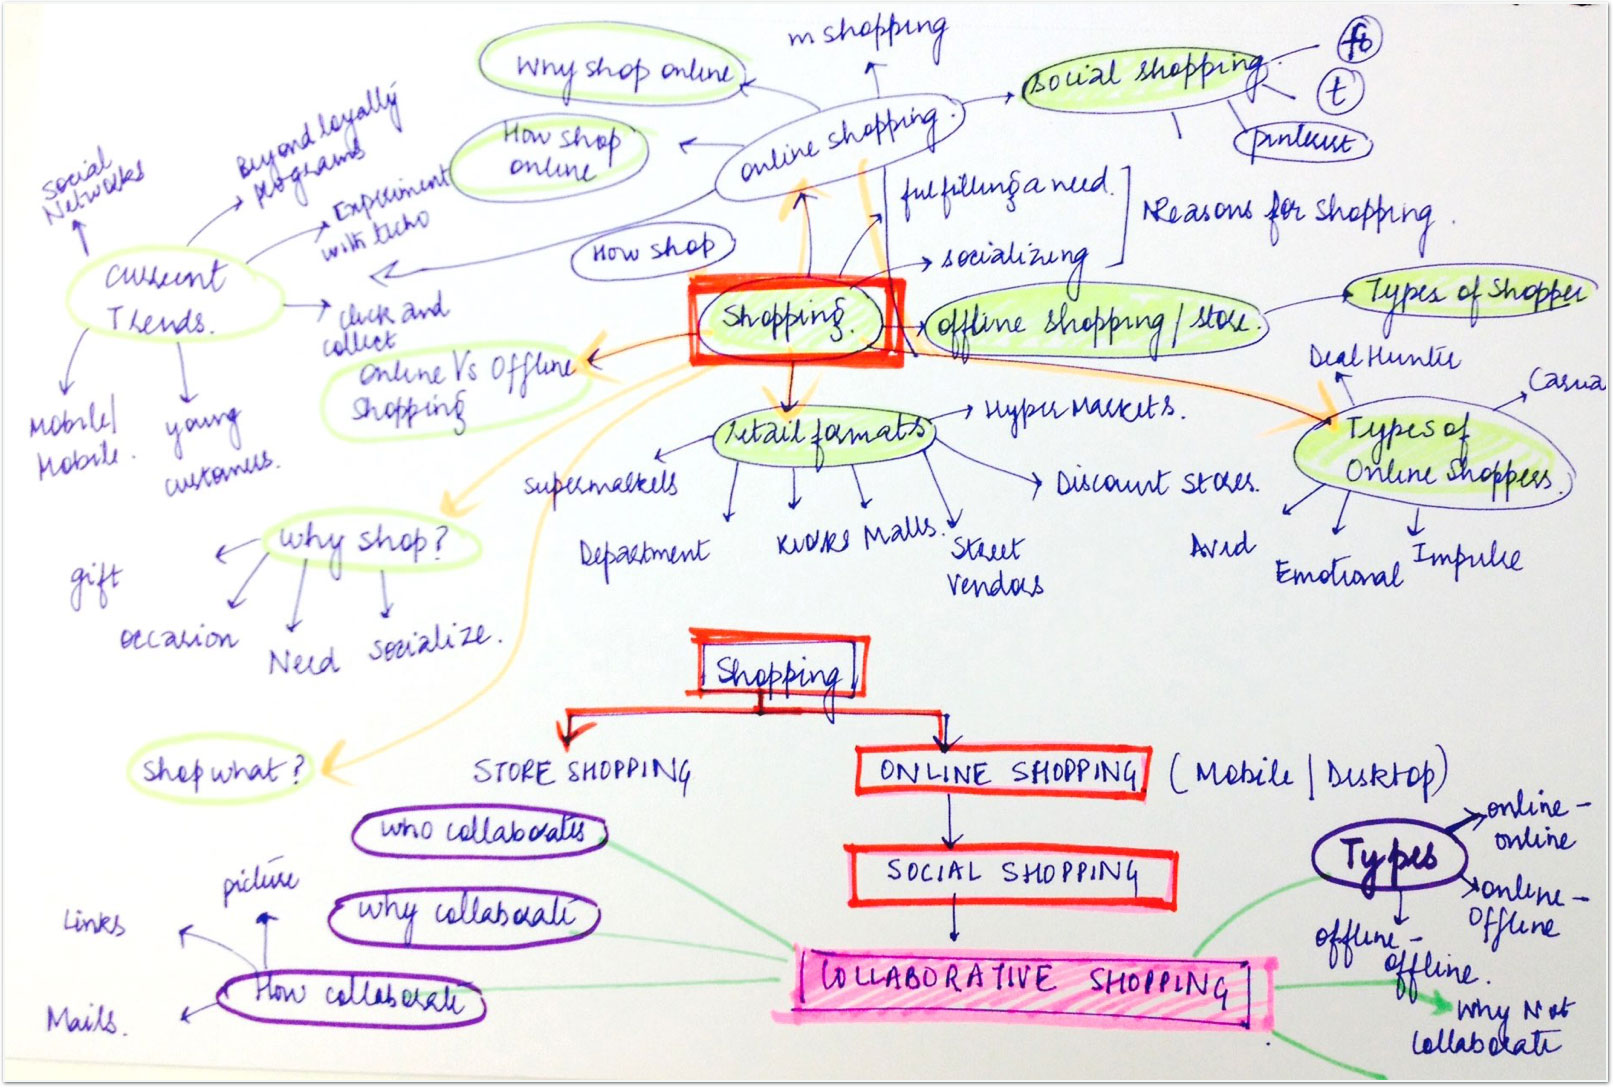 m shopping
Why shop online
social shopping
fb
t
pinterest
How shop
online
online shopping
Beyond loyalty
programs
Social
Networks
Experiment
with techo
How shop
fulfilling a need
socializing
Reasons for shopping.
Current
Trends.
click and
collect
Mobile/
Mobile.
young
customers.
Shopping.
offline shopping / store.
Types of Shopper
Online Vs Offline
Shopping
retail formats
Hyper Markets.
Supermarkets
Department
Kiosks
Malls.
Street
Vendors
Discount Stores.
Deal Hunter
Casua
Types of
Online Shoppers.
Avid
Emotional
Impulse
why shop?
gift
occasion
Need
Socialize.
Shop what?
Shopping
STORE SHOPPING
ONLINE SHOPPING
(Mobile | Desktop)
SOCIAL SHOPPING
COLLABORATIVE SHOPPING
who collaborates
why collaborate
How collaborate
picture
Links
Mails.
Types
online-
online
online-
offline
offline-
offline.
Why Not
Collaborate